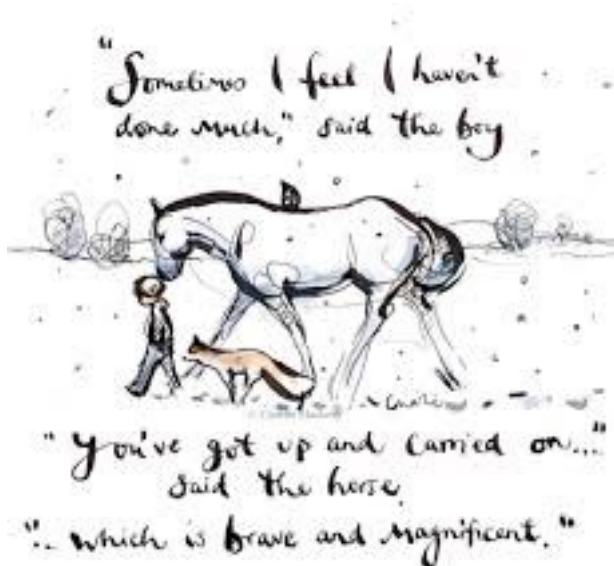 "Sometimes I feel I haven't
done much," said the boy
"You've got up and carried on..."
said the horse
".. which is brave and magnificent."